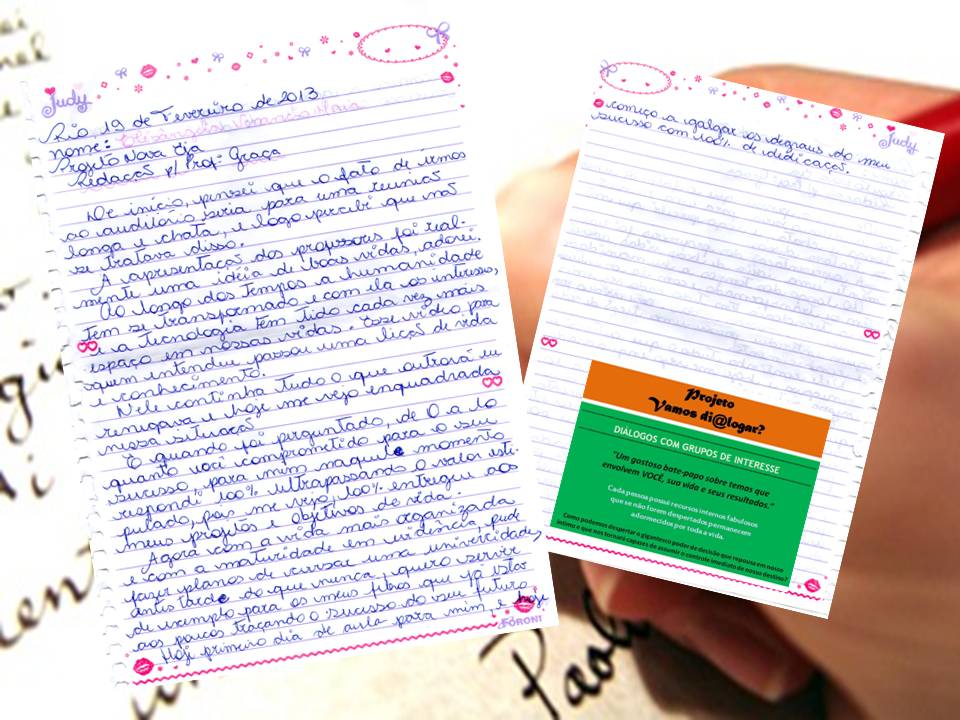 Judy
Rio, 19 de Fevereiro de 2013
nome: Elisângela Venancio Maia
Projeto Nova Eja
Redação p/ Profª Graça
De início, pensei que o fato de irmos
ao auditório seria para uma reunião
longa e chata, e logo percebi que não
se tratava disso.
A apresentação dos professores foi real-
mente uma idéia de boas vidas, adorei.
Ao longo dos tempos a humanidade
tem se transformado e com ela os interesses,
e a tecnologia tem tido cada vez mais
espaço em nossas vidas. Esse vídeo, para
quem entendeu passou uma lição de vida
e conhecimento.
Nele continha tudo o que outrora eu
renegava e hoje me vejo enquadrada
nessa situação
E quando foi perguntado, de 0 a 10
quanto você comprometido para o seu
sucesso, para mim naquele momento
respondi 100% ultrapassando o valor esti-
pulado, pois me vejo, 100% entregue aos
meus projetos e objetivos de vida.
Agora com a vida mais organizada
e com a maturidade em vigência, pude
fazer planos de cursar uma univercidade,
antes tarde do que nunca, quero servir
de exemplo para os meus filhos que já estão
aos poucos traçando o sucesso do seu futuro.
Hoje primeiro dia de aula para mim, e hoje
FORONI
Judy
começo a galgar os degraus do meu
sucesso com 100% de dedicação.
Projeto
Vamos di@logar?
DIÁLOGOS COM GRUPOS DE INTERESSE
"Um gostoso bate-papo sobre temas que
envolvem VOCÊ, sua vida e seus resultados."
Cada pessoa possui recursos internos fabulosos
que se não forem despertados permanecem
adormecidos por toda a vida.
Como podemos despertar o gigantesco poder de decisão que repousa em nosso
íntimo e que nos tornará capazes de assumir o controle imediato de nosso destino?